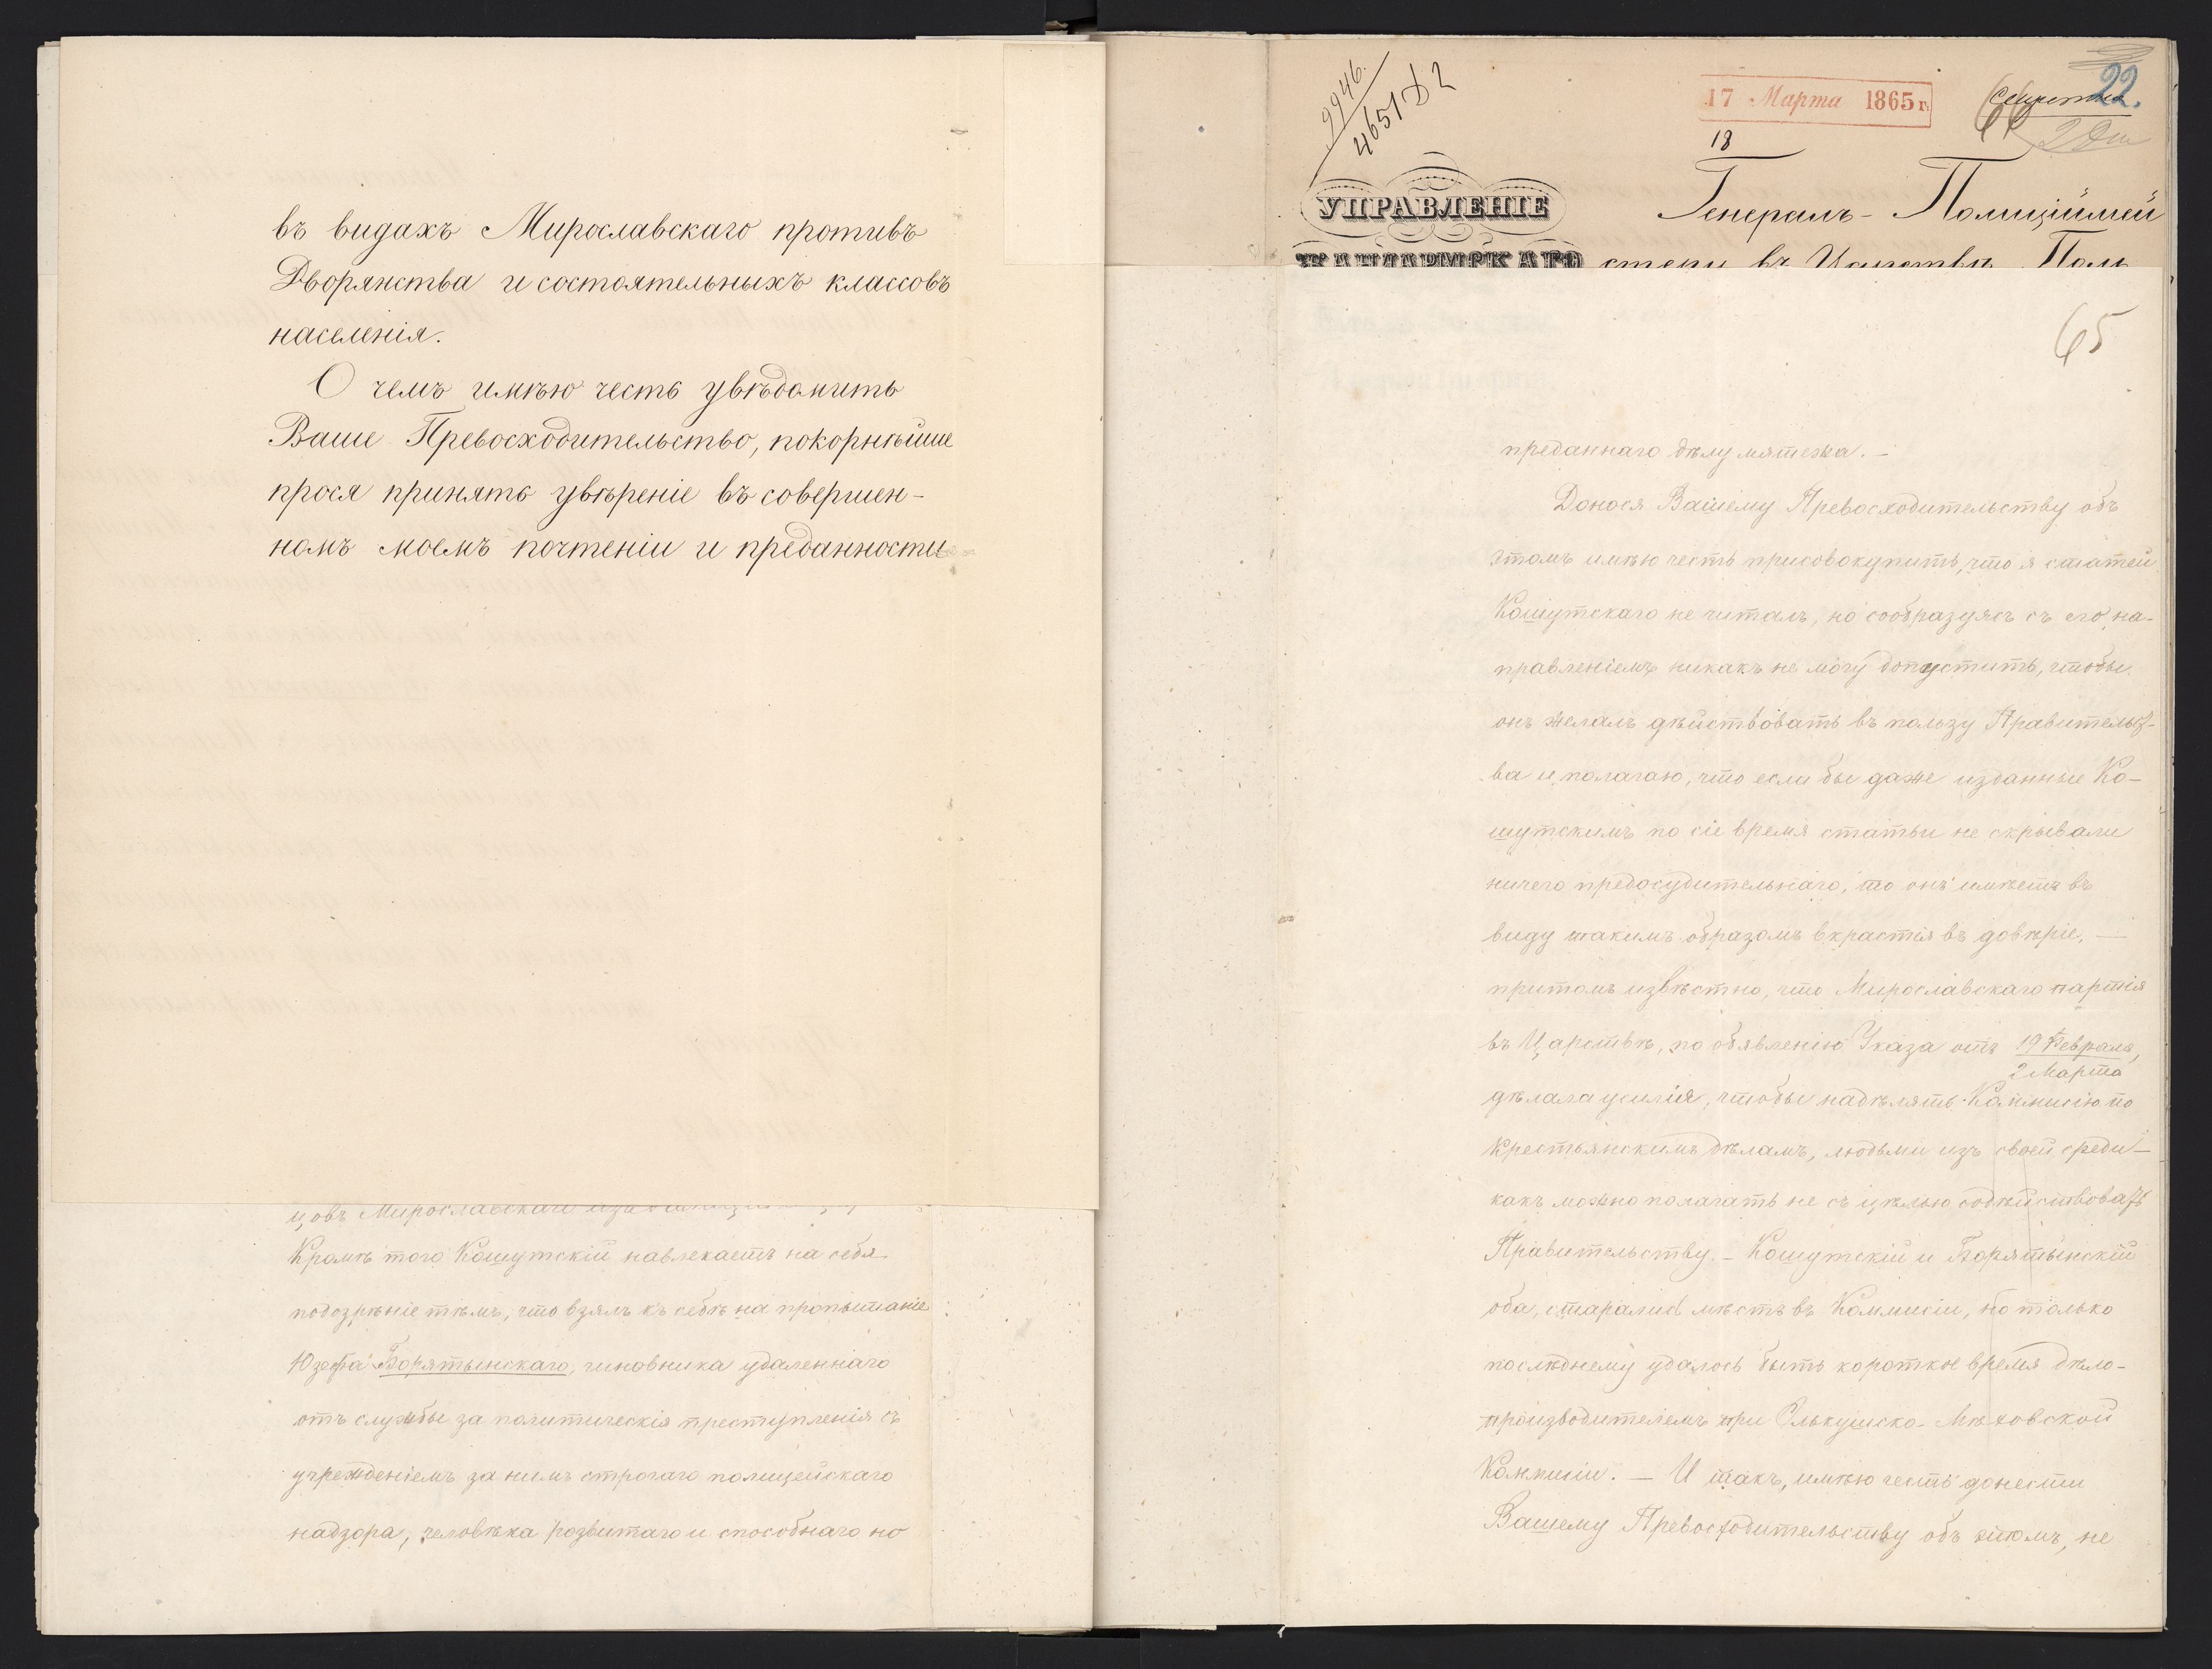 въ видахъ Мирославскаго противъ
Дворянства и состоятельныхъ классовъ
населенія.
О чемъ имѣю честь увѣдомить
Ваше Превосходительство, покорнѣйше
прося принять увѣреніе въ совершен-
номъ моемъ почтеніи и преданности
цовъ Мирославскаго
Кромѣ того Кошутскій навлекаетъ на себя
подозрѣніе тѣмъ, что взялъ къ себѣ на пропытаніе
Юзефа Борятынскаго, чиновника удаленнаго
отъ службы за политическія преступленія съ
учрежденіемъ за нимъ строгаго полицейскаго
надзора, человѣка розвитаго и способнаго но
9946.
4651 D 2
17 Марта 1865 г.
18
22.
Секретно
66
УПРАВЛЕНІЕ
ЖАНДАРМСКАГО
Генералъ-Полиціймей
стеру въ Царствѣ Поль
65
преданнаго дѣлу мятежа. —
Донося Вашему Превосходительству объ
этомъ имѣю честь присовокупить, что я статей
Кошутскаго не читалъ, но сообразуясь съ его на-
правленіемъ никакъ не могу допустить, чтобы
онъ желалъ дѣйствовать въ пользу Правительст-
ва и полагаю, что если бы даже изданные Ко-
шутскимъ по сіе время статьи не скрывали
ничего предосудительнаго, то онъ имѣетъ въ
виду такимъ образомъ вкрастія въ довѣріе, —
притомъ извѣстно, что Мирославскаго партія
въ Царствѣ, по объявленію Указа отъ 19 Февраля,
2 Марта
дѣлала усилія, чтобы надѣлять Коммисію по
Крестьянскимъ дѣламъ, людьми изъ своей среды —
какъ можно полагать не съ цѣлью содѣйствовать
Правительству. — Кошутскій и Борятынскій
оба, старались мѣстъ въ Коммисіи, но только
послѣднему удалось быть короткое время дѣло-
производителемъ при Олькушско-Мѣховской
Коммисіи. — И такъ, имѣю честь донести
Вашему Превосходительству объ этомъ, не